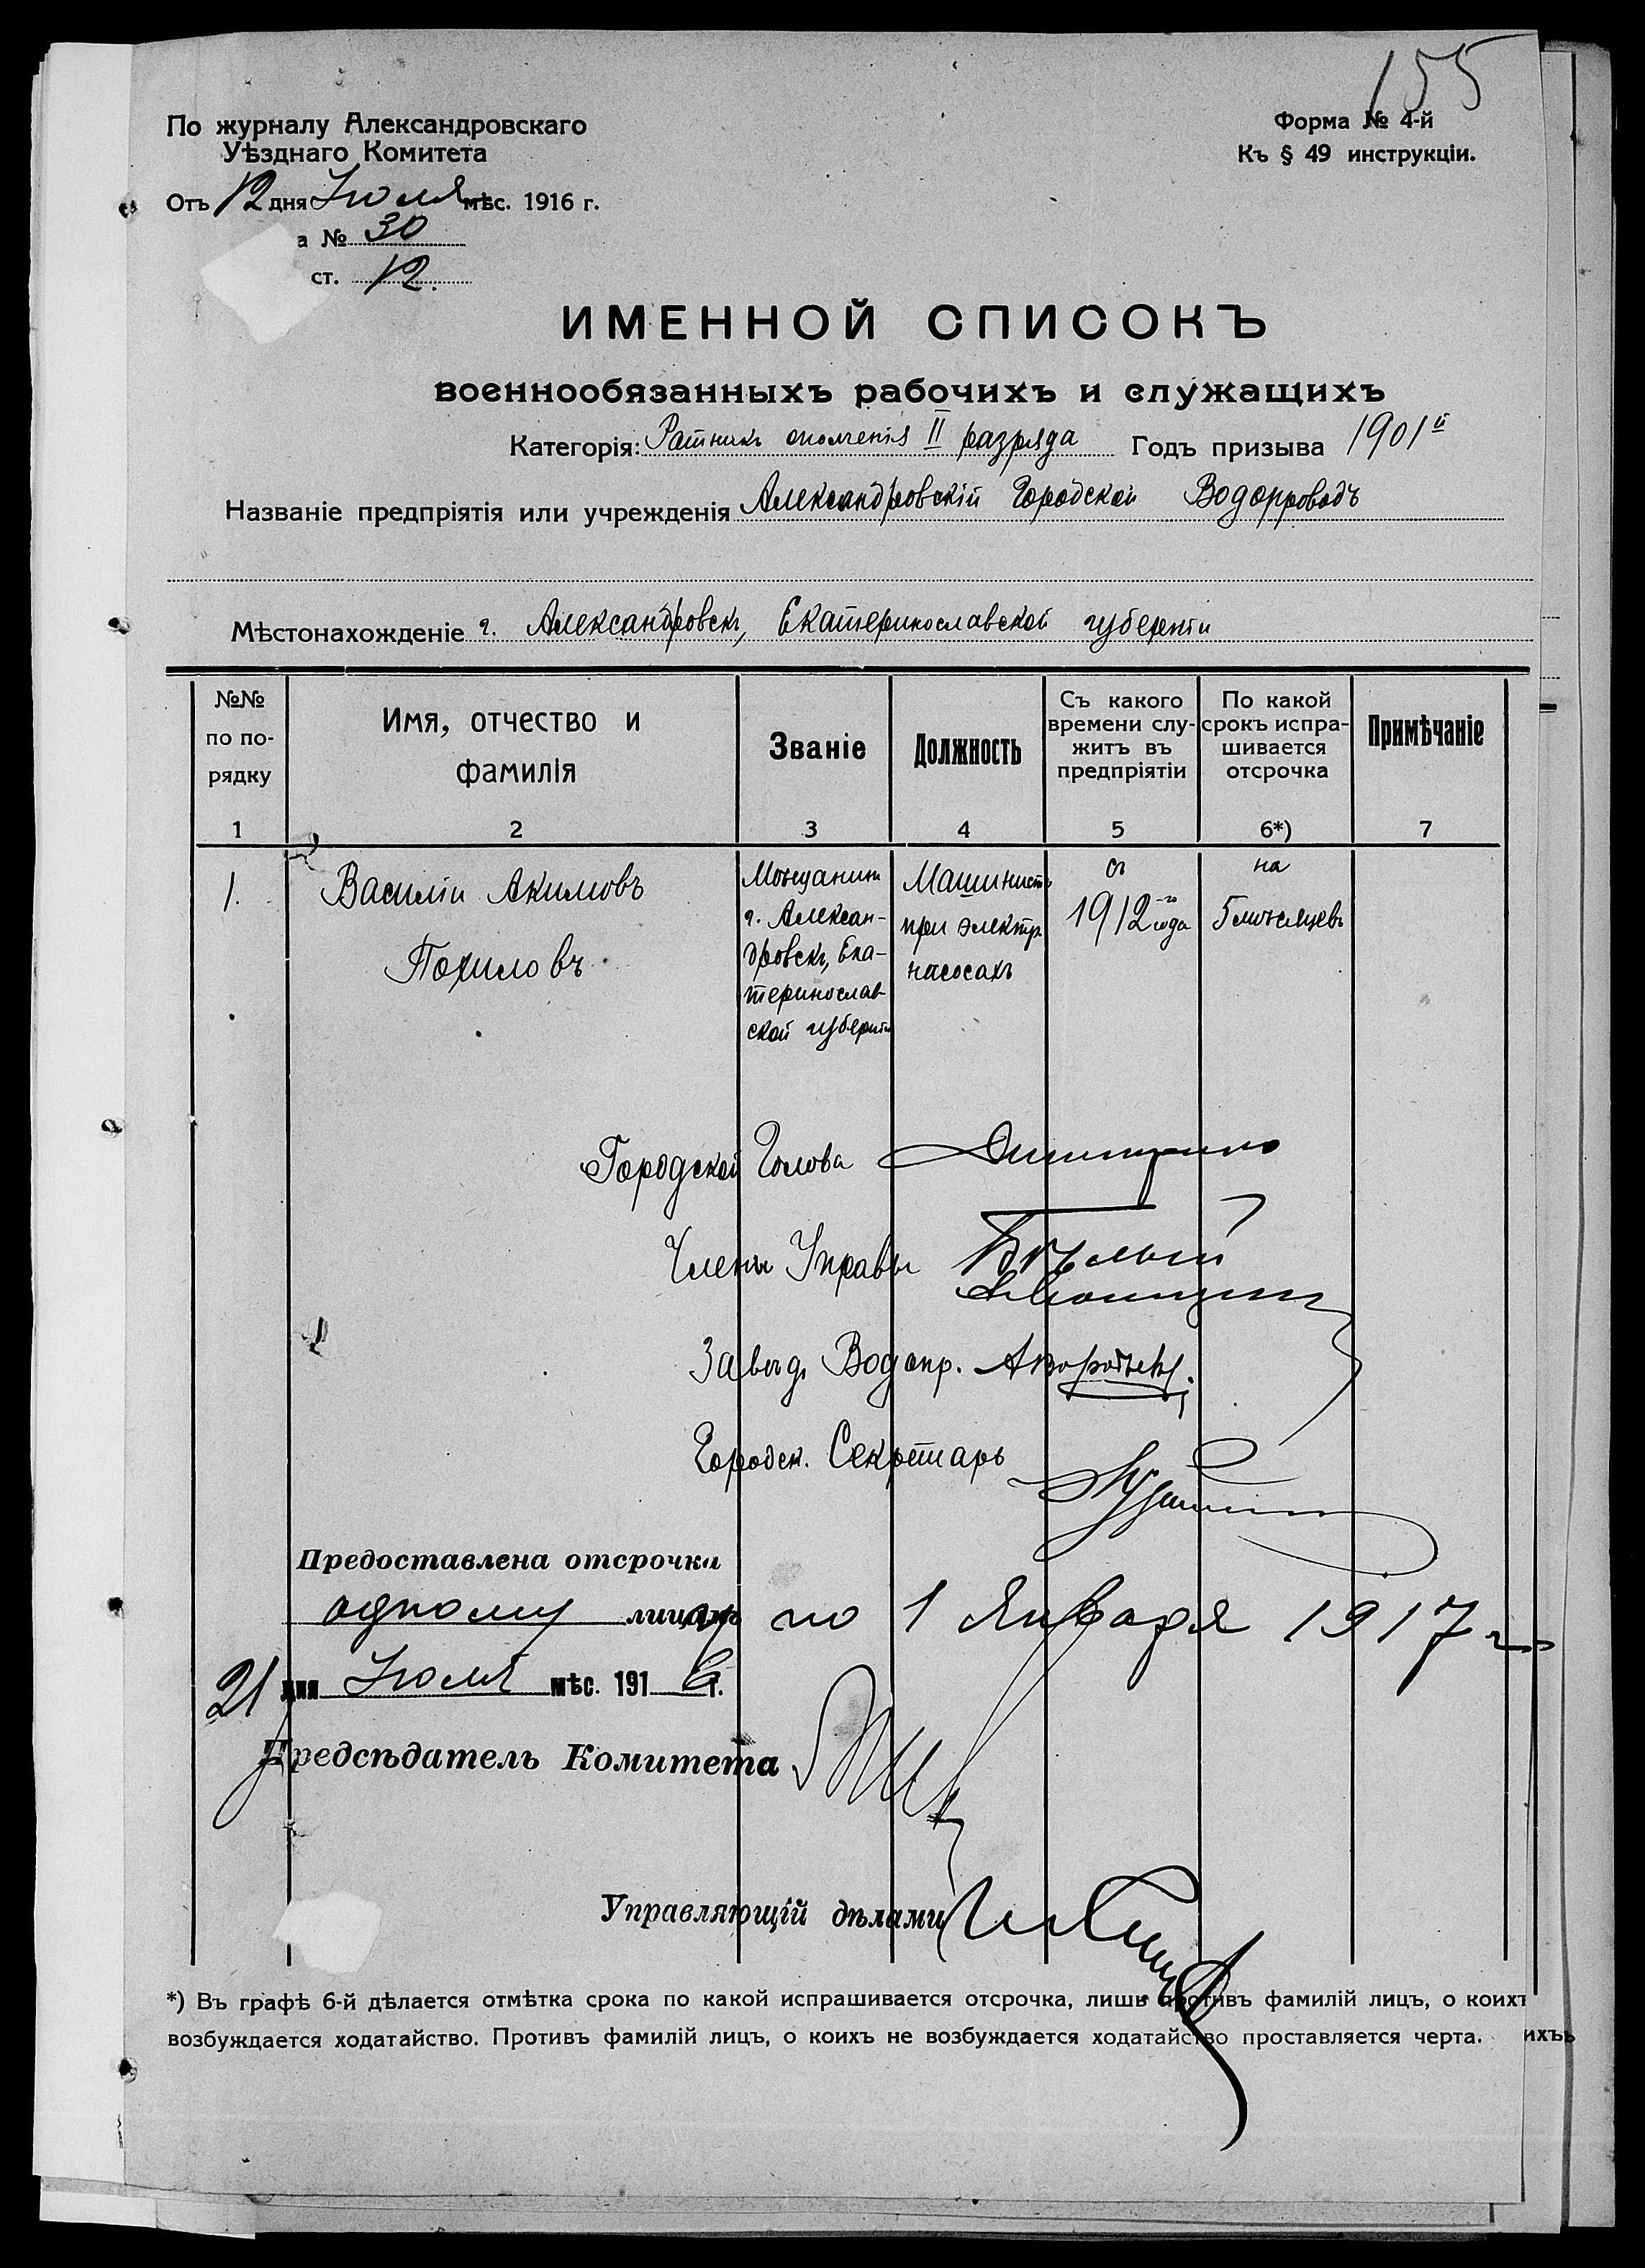 155
По журналу Александровскаго
Уѣзднаго Комитета
Отъ 12 дня Іюля мѣс. 1916 г.
а № 30
ст. 12.
Форма № 4-й
Къ § 49 инструкціи.
ИМЕННОЙ СПИСОКЪ
военнообязанныхъ рабочихъ и служащихъ
Категорія: Ратникъ ополченія II разряда Годъ призыва 1901й
Названіе предпріятія или учрежденія Александровскій Городской Водопроводъ
Мѣстонахожденіе г. Александровскъ, Екатеринославской губерніи
№№ по по-рядку
Имя, отчество и фамилія
Званіе
Должность
Съ какого времени слу-житъ въ предпріятіи
По какой срокъ испра-шивается отсрочка
Примѣчаніе
1 2 3 4 5 6*) 7
1.
Василій Акимовъ
Похиловъ
Мѣщанинъ
г. Алексан-
дровскъ, Ека-
теринослав-
ской губерніи
Машинистъ
при электр.
насосахъ
съ
1912-го года
на
5 мѣсяцевъ
Городской Голова
Члены Управы Бѣлый
Завѣд. Водопр.
Городск. Секретарь
Предоставлена отсрочка
одному лицу по 1 Января 1917 г.
21 дня Іюля мѣс. 1916 г.
Предсѣдатель Комитета
Управляющій дѣлами
*) Въ графѣ 6-й дѣлается отмѣтка срока по какой испрашивается отсрочка, лишь противъ фамилій лицъ, о коихъ
возбуждается ходатайство. Противъ фамилій лицъ, о коихъ не возбуждается ходатайство проставляется черта.
ихъ